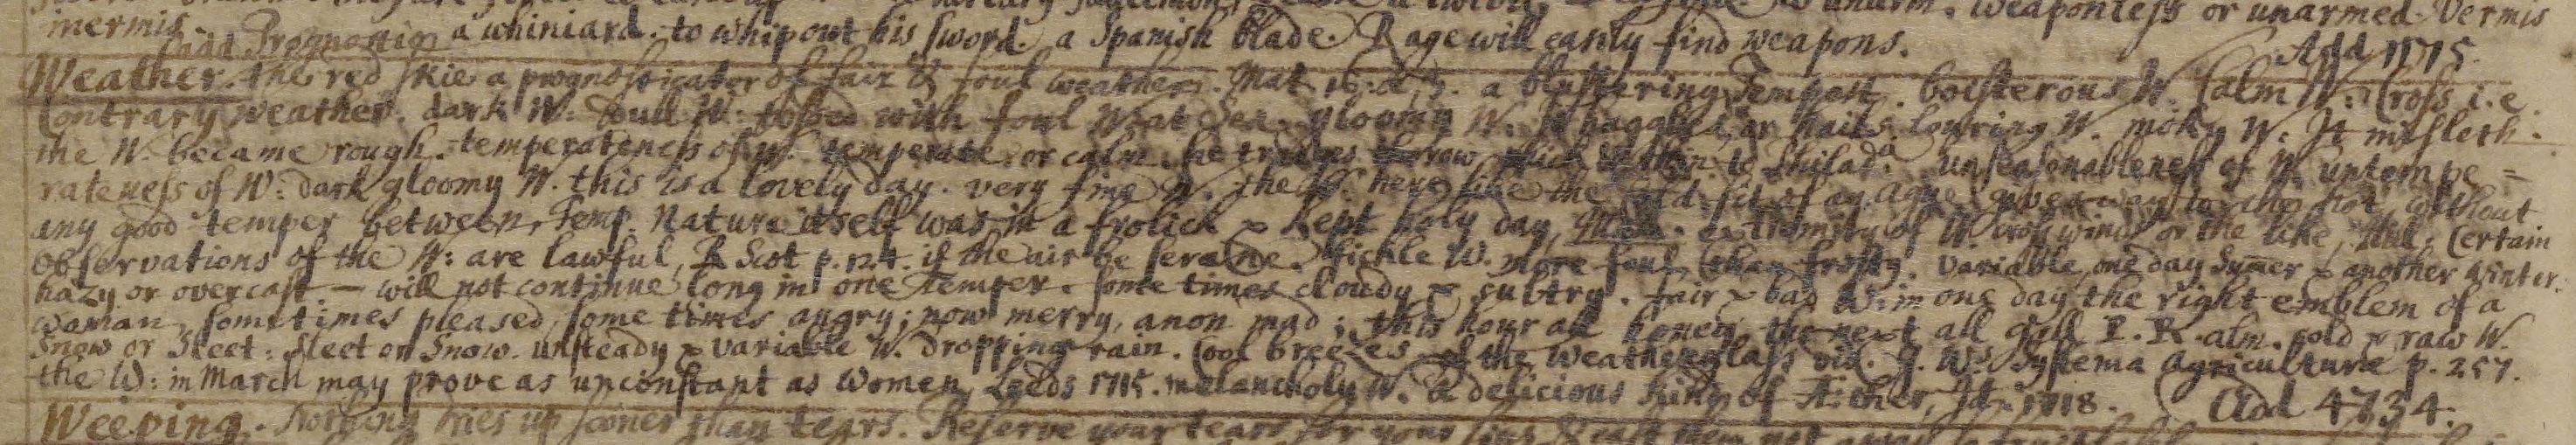 inermis a whiniard. to whip out his sword. a Spanish blade. Rage will easily find weapons. weaponless or unarmed. Vermis
add Prognostiq Add 1175.
Weather. the red skie a prognosticator of fair & foul weather. Mat. 16. 2, 3. a blustering Tempest. boisterous W. Calm W: Cross i.e
Contrary weather. dark W: dull W: tossed with foul Weather. gloomy W. It haggles, or hails. louring W. moky W: It misleth.
the W. became rough. temperateness of W. temperate or calm. he trudges throw thick & thin to Philada. unseasonableness of W. untempe=
rateness of W: dark gloomy W. this is a lovely day. very fine W. the W. here like the cold fit of an ague gives way to the hot without
any good temper between, Temp. Nature itself was in a frolick & kept holy day, extremity of W. cross winds or the like, Certain
Observations of the W: are lawful, R Scot p. 124. if the air be seraine. fickle W. more foul than frosty. variable, one day Summer & another winter.
hazy or overcast — will not continue long in one Temper. some times cloudy & sultry. fair & bad W: in one day the right emblem of a
woman, sometimes pleased, some times angry; now merry, anon mad; this hour all honey, the next all gall P. R. alm. cold & raw W.
Snow or Sleet: Sleet or Snow. unsteady & variable W. dropping rain. Cool breezes of the weatherglass vid. J. W's Systema Agriculturæ p. 257.
the W: in March may prove as unconstant as Women, Leeds 1715. melancholy W. a delicious kind of Æther, Id. 1718. Add 4734.
Weeping. Nothing dries up sooner than tears. Reserve your tears for your sins